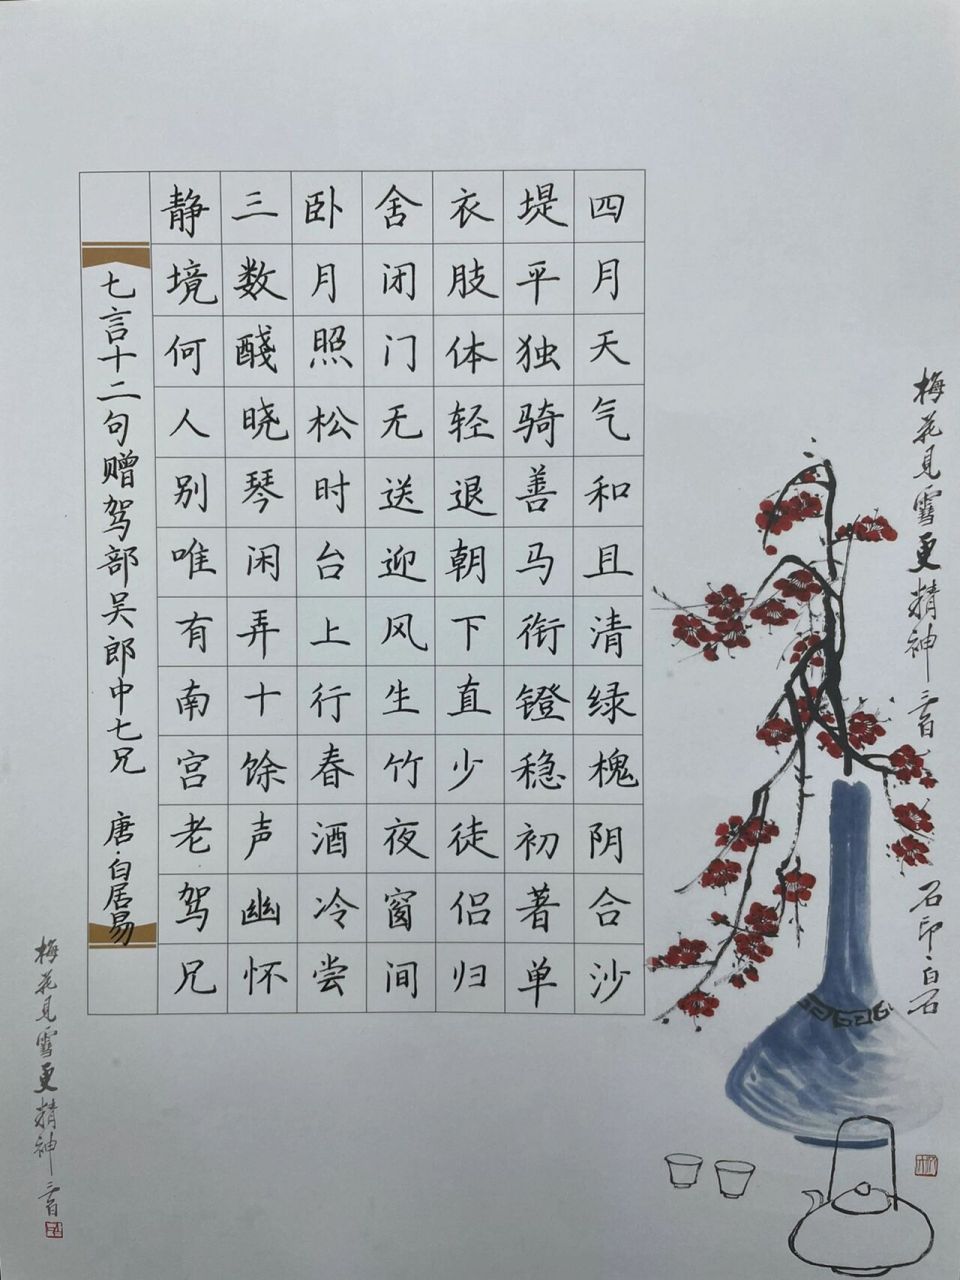 四月天气和且清绿槐阴合沙
堤平独骑善马衔镫稳初著单
衣肢体轻退朝下直少徒侣归
舍闭门无送迎风生竹夜窗间
卧月照松时台上行春酒冷尝
三数醆晓琴闲弄十馀声幽怀
静境何人别唯有南宫老驾兄
七言十二句赠驾部吴郎中七兄 唐·白居易
梅花见雪更精神
石印·白石
梅花见雪更精神